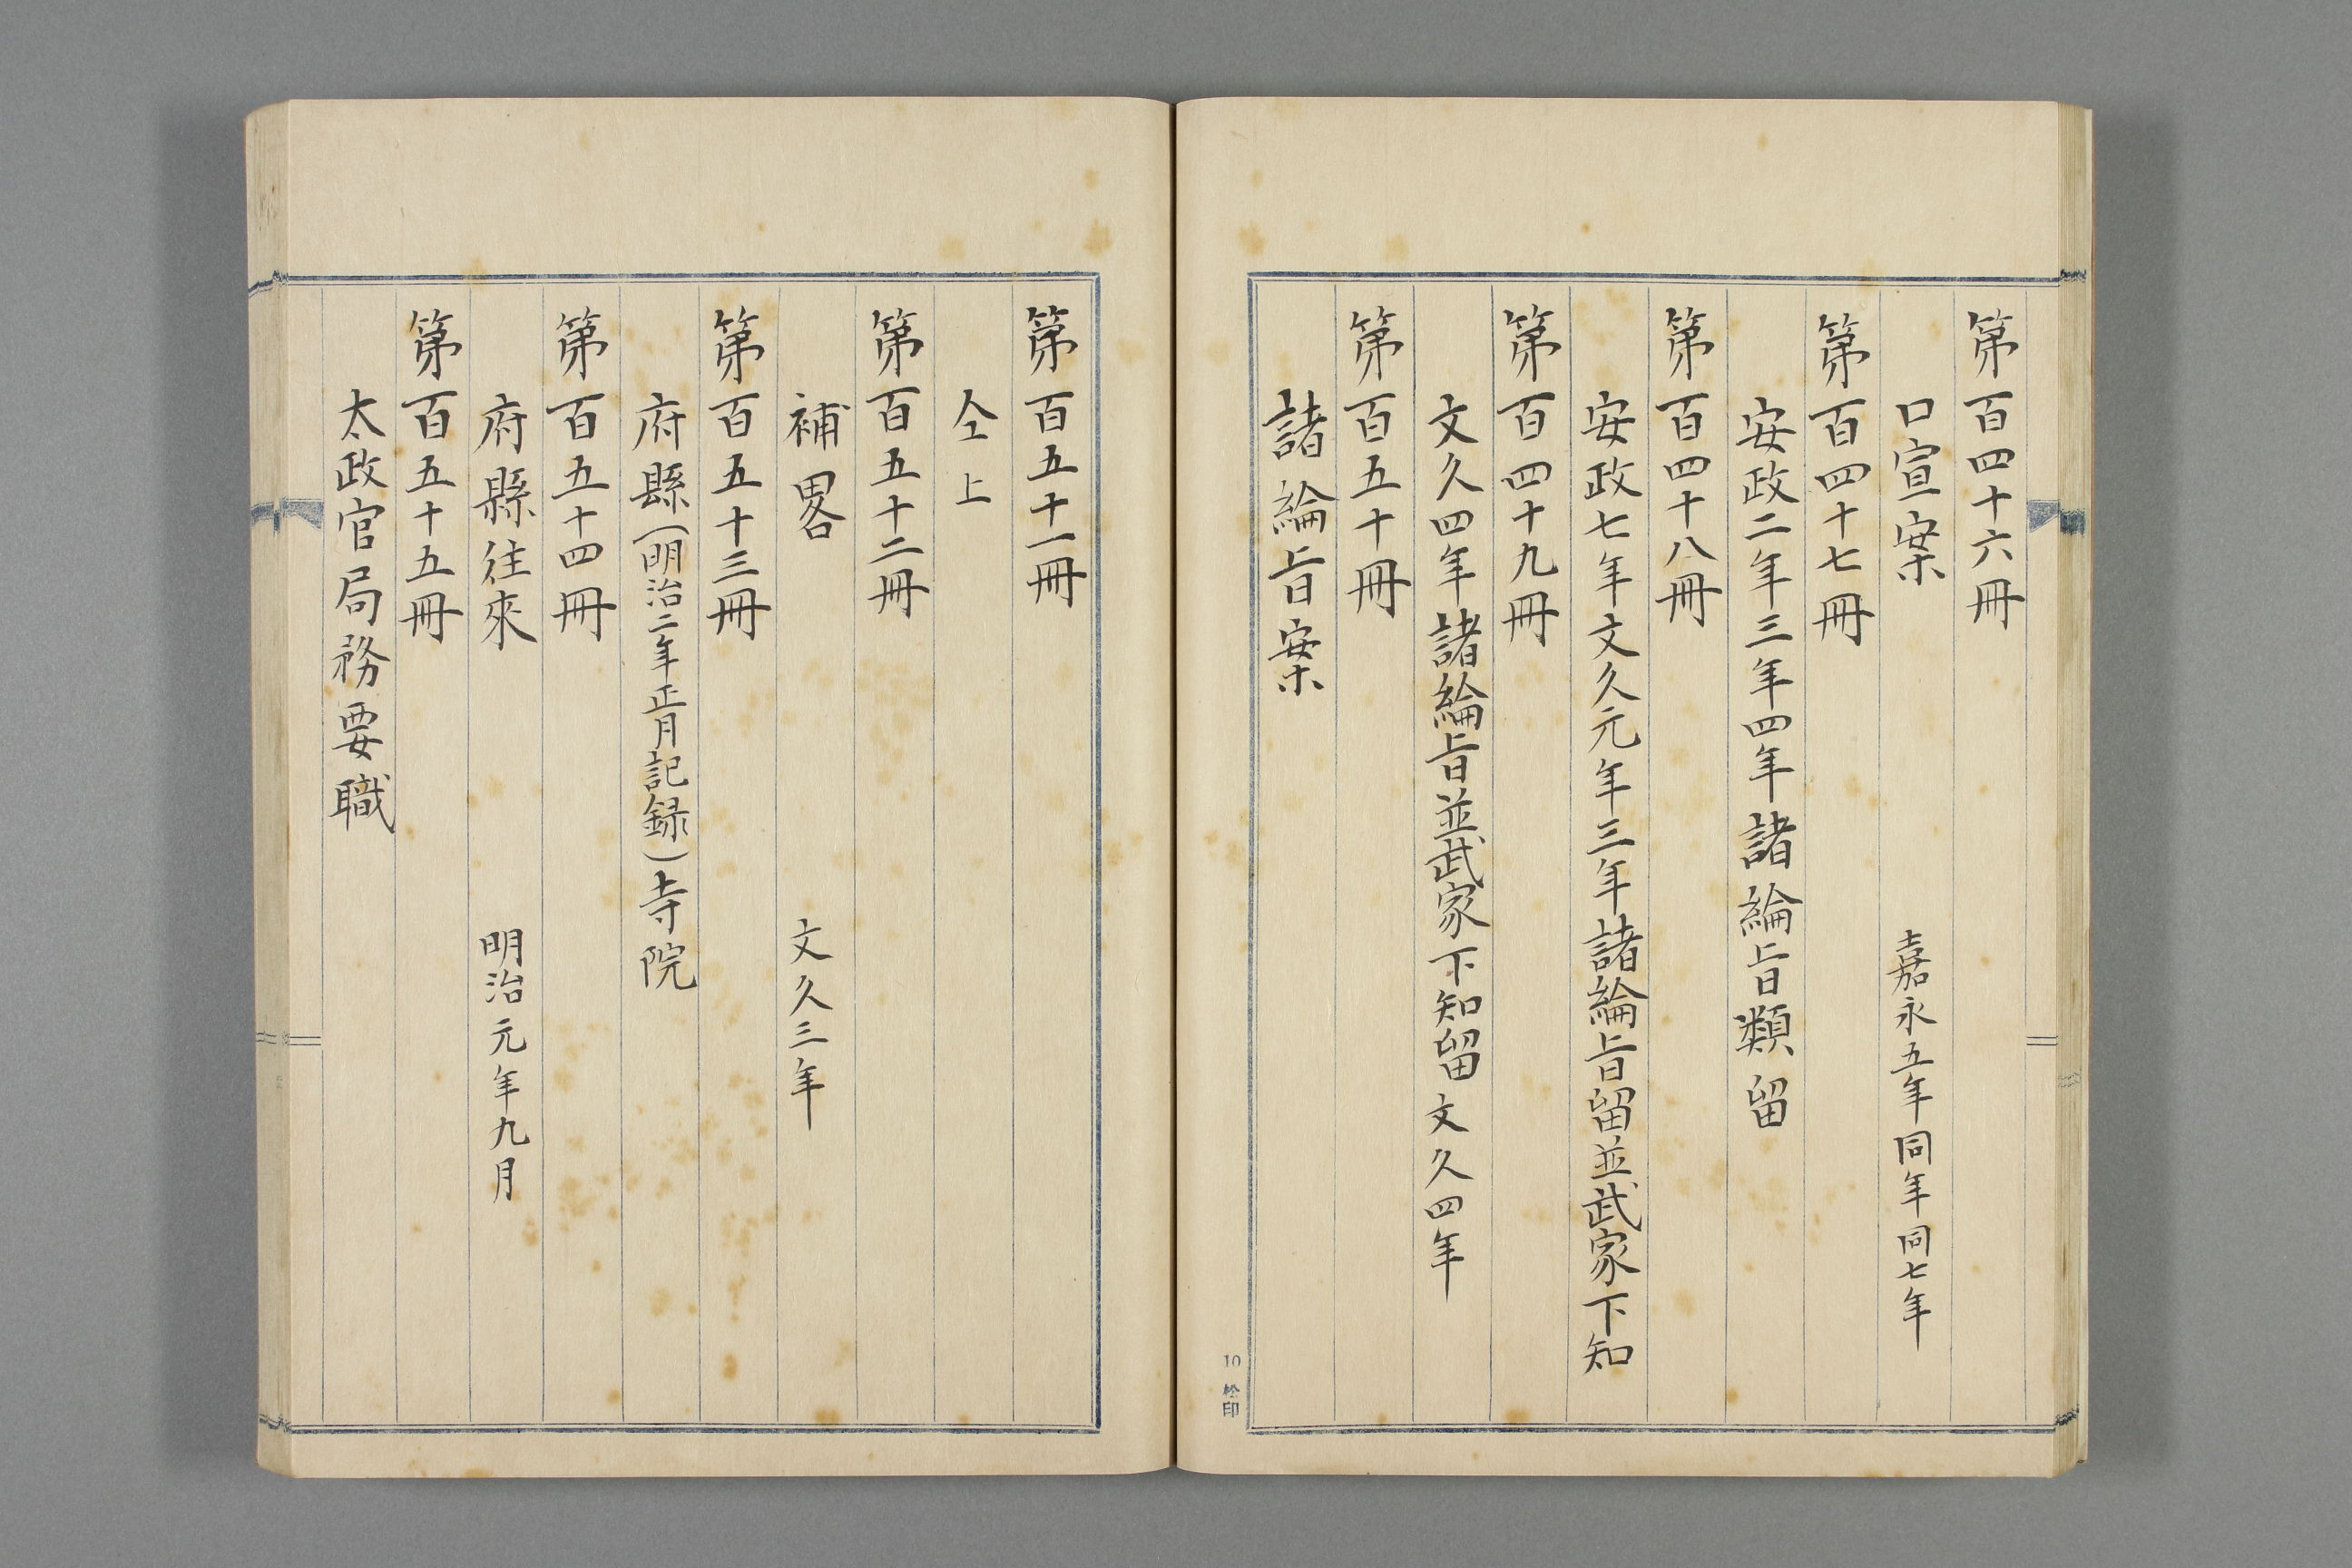 第百四十六冊
口宣案　嘉永五年同年同七年
第百四十七冊
安政二年三年四年諸綸旨類留
第百四十八冊
安政七年文久元年三年諸綸旨留並武家下知
第百四十九冊
文久四年諸綸旨並武家下知留　文久四年
第百五十冊
諸綸旨案
10 松印
第百五十一冊
仝上
第百五十二冊
補畧　文久三年
第百五十三冊
府縣(明治二年正月記録)寺院
第百五十四冊
府縣往來　明治元年九月
第百五十五冊
太政官局務要職